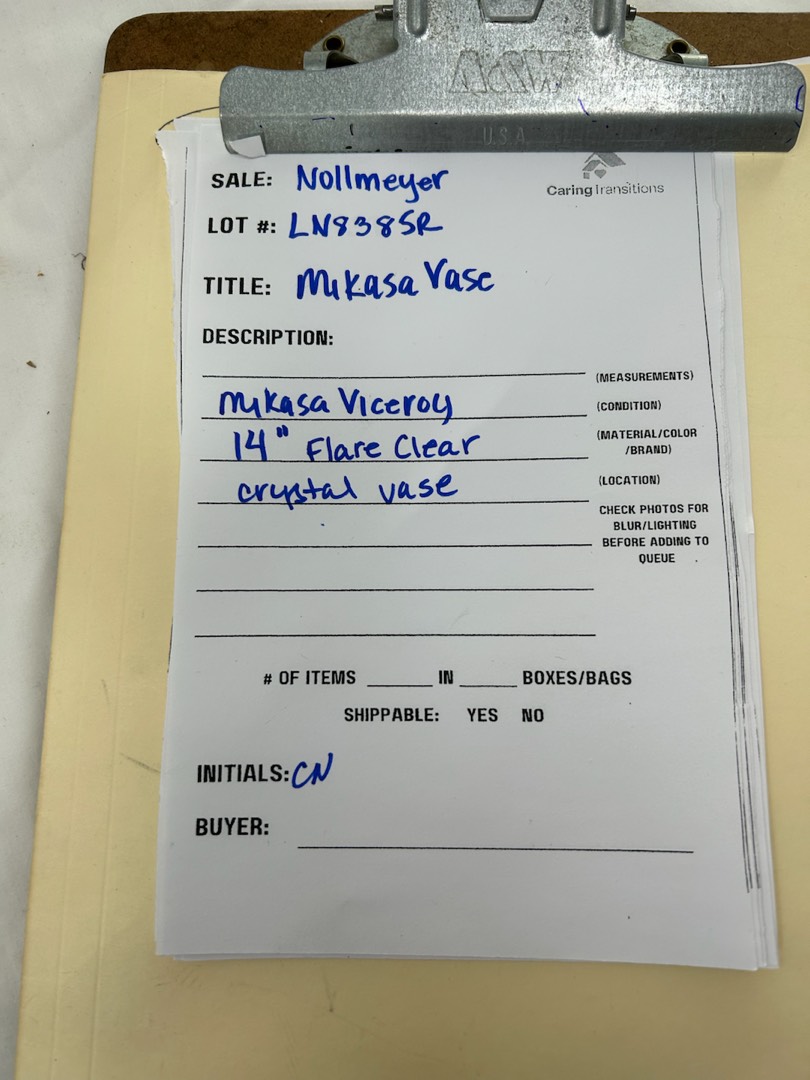 U.S.A.
CaringTransitions
SALE: Nollmeyer
LOT #: LN8385R
TITLE: Mikasa Vase
DESCRIPTION:
(MEASUREMENTS)
Mikasa Viceroy
(CONDITION)
14" Flare Clear
(MATERIAL/COLOR
/BRAND)
crystal vase
(LOCATION)
CHECK PHOTOS FOR
BLUR/LIGHTING
BEFORE ADDING TO
QUEUE
# OF ITEMS ______ IN ______ BOXES/BAGS
SHIPPABLE: YES NO
INITIALS: CN
BUYER: